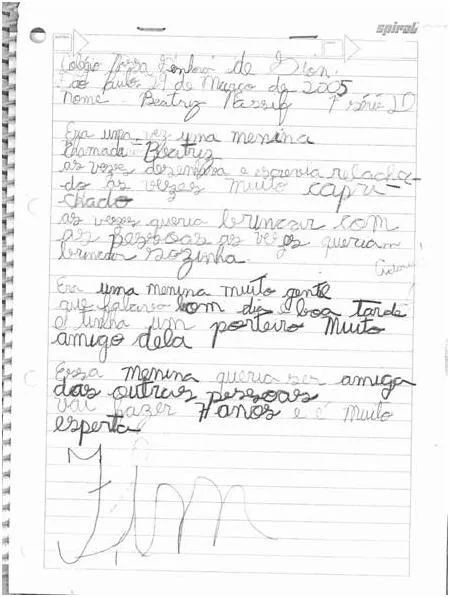 spiral
Colégio Nossa Senhora de Sion.
São Paulo 29 de Março de 2005
Nome Beatriz Nassif 1ª série D
Era uma vez uma menina
chamada Beatriz
as vezes desenhava e escrevia relacha-
do às vezes muito capri-
chado
as vezes queria brincar com
as pessoas as vezes queriam
brincar sozinha.
Era uma menina muito gentil
que falava bom dia e boa tarde
e tinha um porteiro muito
amigo dela
Essa menina queria ser amiga
das outras pessoas
vai fazer 7 anos e é muito
esperta
Fim